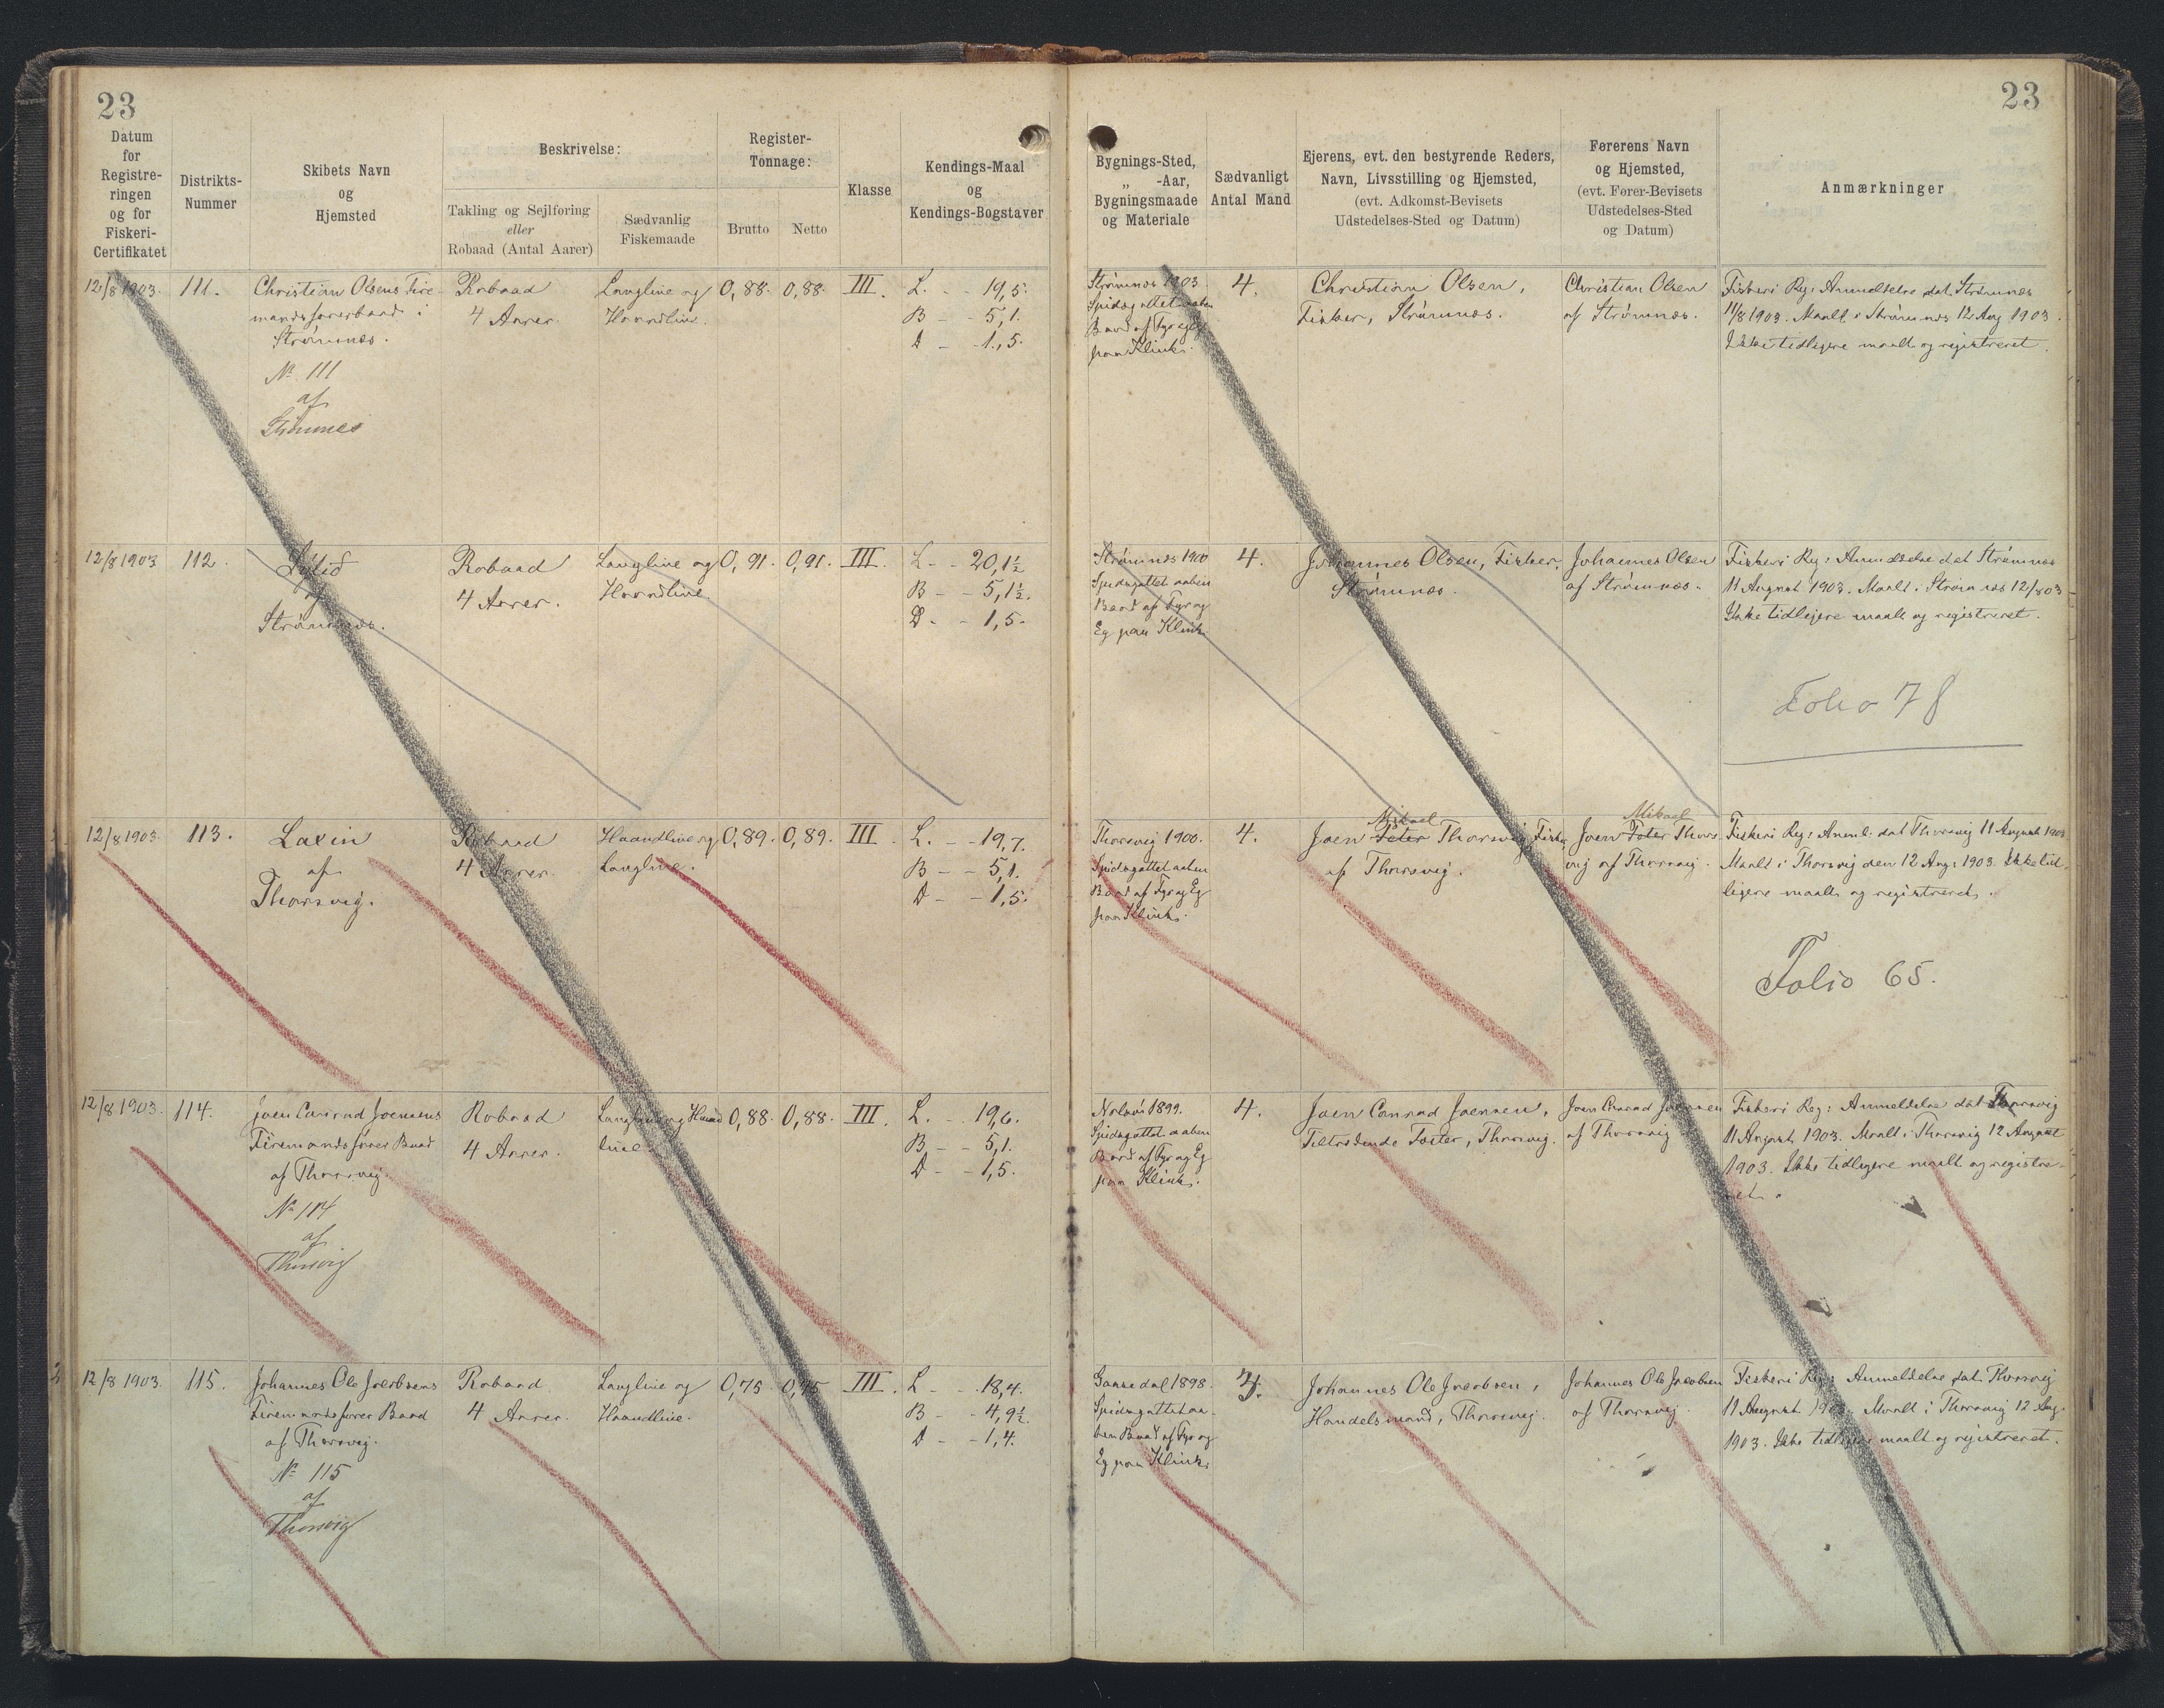 23
23
Datum
for
Registre-
ringen
og for
Fiskeri-
Certifikatet
Distrikts-
Nummer
Skibets Navn
og
Hjemsted
Beskrivelse:
Takling og Sejlføring
eller
Robaad (Antal Aarer)
Sædvanlig
Fiskemaade
Register-
Tonnage:
Brutto
Netto
Klasse
Kendings-Maal
og
Kendings-Bogstaver
Bygnings-Sted,
„ -Aar,
Bygningsmaade
og Materiale
Sædvanligt
Antal Mand
Ejerens, evt. den bestyrende Reders,
Navn, Livsstilling og Hjemsted,
(evt. Adkomst-Bevisets
Udstedelses-Sted og Datum)
Førerens Navn
og Hjemsted,
(evt. Fører-Bevisets
Udstedelses-Sted
og Datum)
Anmærkninger
12/8 1903.
111.
Christian Olsens Fire-
mandsfarerbaad i
Strømnæs.
No 111
af
Strømnes
Robaad
4 Aarer.
Langline og
Haandline.
0,88.
0,88.
III.
L. - - 19,5.
B - - 5,1.
D - - 1,5.
Strømnæs 1903.
Spidsgattet aaben
Baad af Fyr og Eg
paa Klink.
4.
Christian Olsen,
Fisker, Strømnæs.
Christian Olsen
af Strømnæs.
Fiskeri Reg: Anmeldelse dat Strømnæs
11/8 1903. Maalt i Strømnæs 12 Aug 1903.
Ikke tidligere maalt og registreret.
12/8 1903
112.
af
Strømnæs.
Robaad
4 Aarer.
Langline og
Haandline.
0,91.
0,91.
III.
L - - 20,1½
B - - 5,1½.
D. - - 1,5.
Strømnæs 1900
Spidsgattet aaben
Baad af Fyr og
Eg paa Klink
4.
Johannes Olsen, Fisker,
Strømnæs.
Johannes Olsen
af Strømnæs.
Fiskeri Reg: Anmeldelse dat Strømnæs
11 August 1903. Maalt i Strømnæs 12/8 03
Ikke tidligere maalt og registreret.
Folio 78
12/8 1903.
113.
Laxin
af
Thorsvig.
Robaad
4 Aarer.
Haandline og
Langline.
0,89.
0,89.
III.
L. - - 19,7.
B - - 5,1.
D - - 1,5.
Thorsvig 1900.
Spidsgattet aaben
Baad af Fyr og Eg
paa Klink.
4.
Mikael
Joen Peter Thorsvig, Fisker
af Thorsvig.
Mikael
Joen Peter Thors-
vig af Thorsvig.
Fiskeri Reg: Anmel: dat Thorsvig 11 August 1903.
Maalt i Thorsvig den 12 Aug: 1903. Ikke tid-
ligere maalt og registreret.
Folio 65.
12/8 1903.
114.
Joen Conrad Joensens
Firemandsfarer Baad
af Thorsvig.
No 114
af
Thorsvig
Robaad
4 Aarer.
Langline og Haand
line.
0,88.
0,88.
III.
L. - - 19,6.
B - - 5,1.
D - - 1,5.
Nolsø 1899.
Spidsgattet aaben
Baad af Fyr og Eg
paa Klink.
4.
Joen Conrad Joensen,
Tiltrædende Fæster, Thorsvig.
Joen Conrad Joensen
af Thorsvig
Fiskeri Reg: Anmeldelse dat Thorsvig
11 August 1903. Maalt i Thorsvig 12 August
1903. Ikke tidligere maalt og registre-
ret.
12/8 1903.
115.
Johannes Ole Jacobsens
Firemandsfarer Baad
af Thorsvig.
No 115
af
Thorsvig
Robaad
4 Aarer.
Langline og
Haandline.
0,75.
0,75
III.
L - - 18,4.
B - - 4,9½.
D - - 1,4.
Gaasedal 1898.
Spidsgattet aa-
ben Baad af Fyr og
Eg paa Klink.
Johannes Ole Jacobsen,
Handelsmand, Thorsvig.
Johannes Ole Jacobsen
af Thorsvig.
Fiskeri Reg: Anmeldelse dat. Thorsvig
11 August 1903. Maalt i Thorsvig 12 Aug.
1903. Ikke tidligere maalt og registreret.